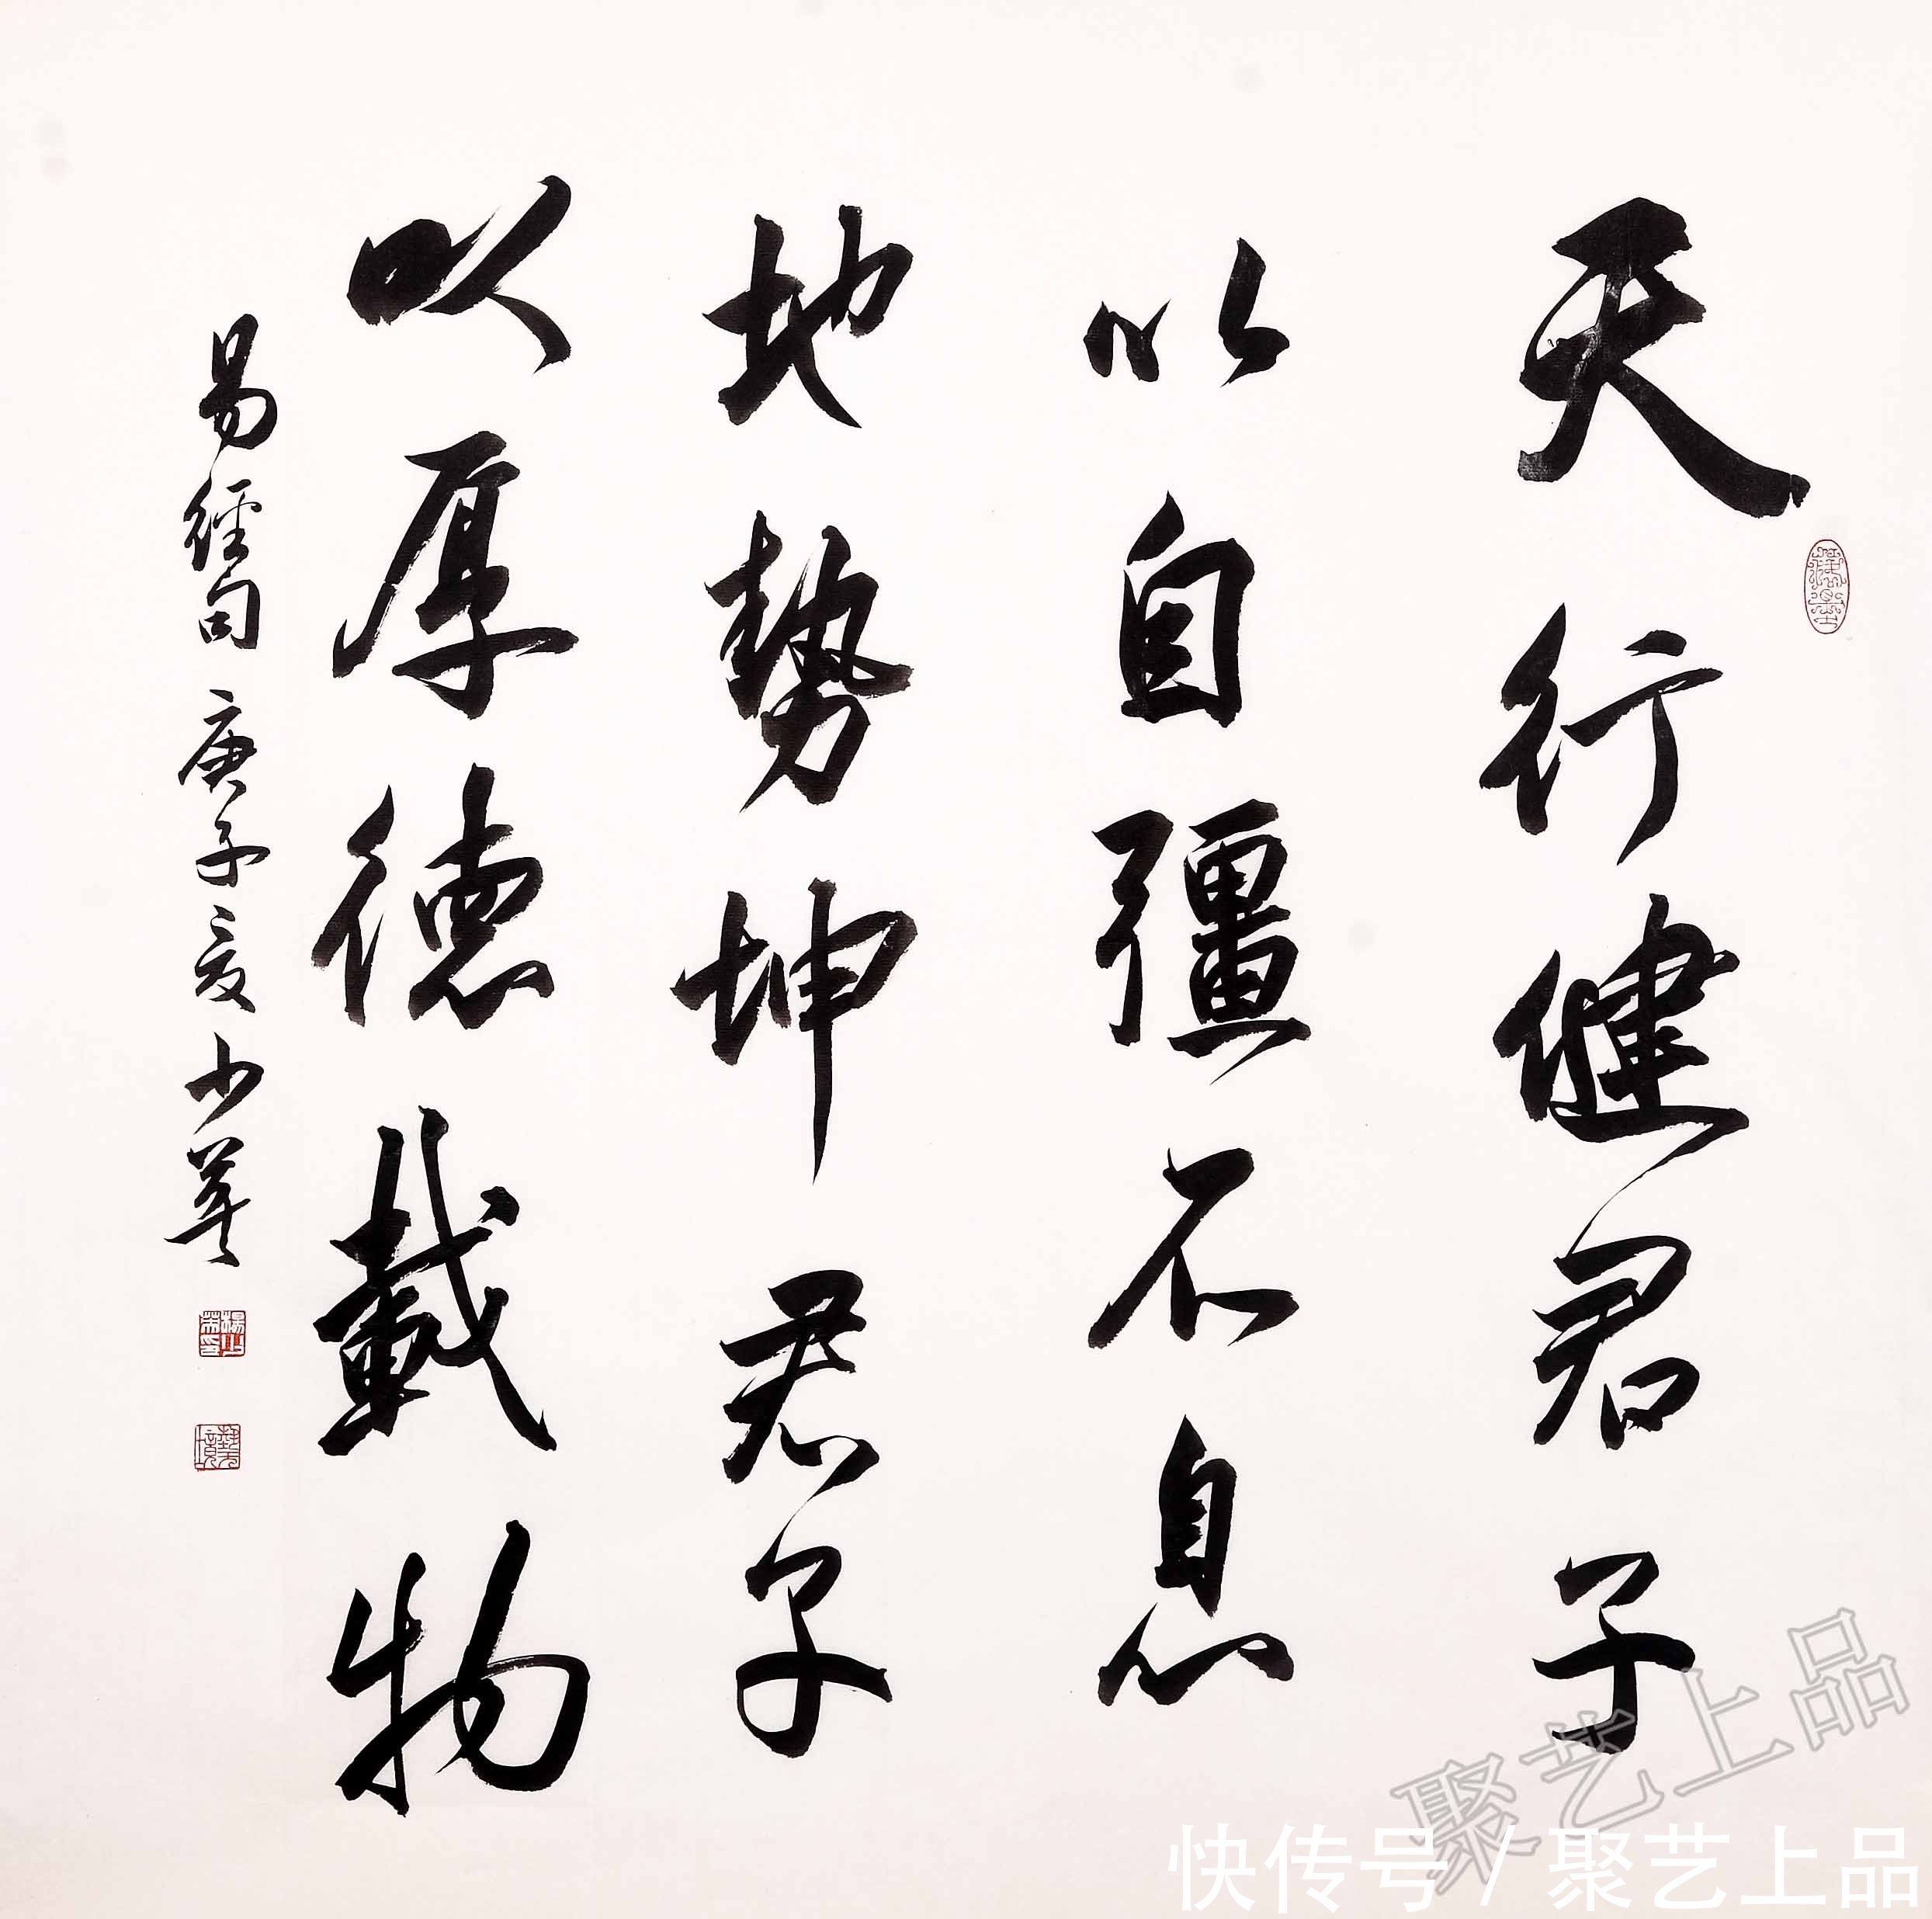 天行健君子
以自彊不息
地勢坤君子
以厚德載物
易經句 庚子夏 少華
聚艺上品
快传号 / 聚艺上品